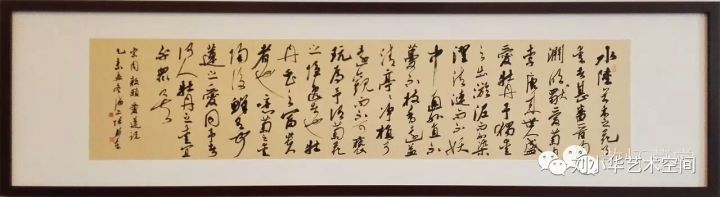 水陸草木之花可
愛者甚蕃晉陶
淵明獨愛菊自
李唐來世人盛
愛牡丹予獨愛
之出淤泥而不染
濯清漣而不妖
中通外直不
蔓不枝香遠益
清亭亭淨植可
遠觀而不可褻
玩焉予謂菊花
之隱逸者也牡
丹花之富貴
者也噫菊之愛
陶後鮮有聞
蓮之愛同予者
何人牡丹之愛宜
乎眾矣
宋周敦頤愛蓮說
乙未海上
刘小华艺术空间